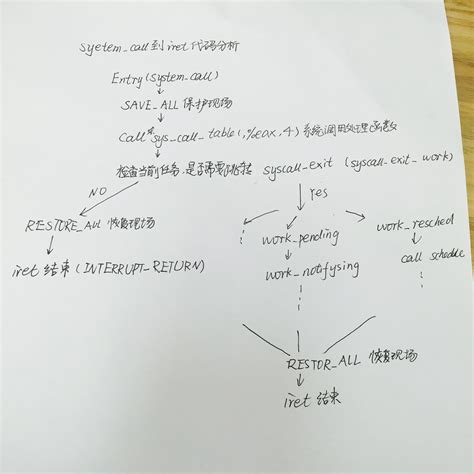 syetem_call到iret代码分析
Entry(system_call)
SAVE_ALL 保护现场
call *sys_call_table(,%eax,4) 系统调用处理函数
检查当前任务,是否需要跳转 syscall_exit (syscall_exit_work)
NO
yes
RESTORE_ALL 恢复现场
work_pending
work_resched
iret 结束 (INTERRUPT_RETURN)
work_notifysing
call schedule
RESTOR_ALL 恢复现场
iret 结束